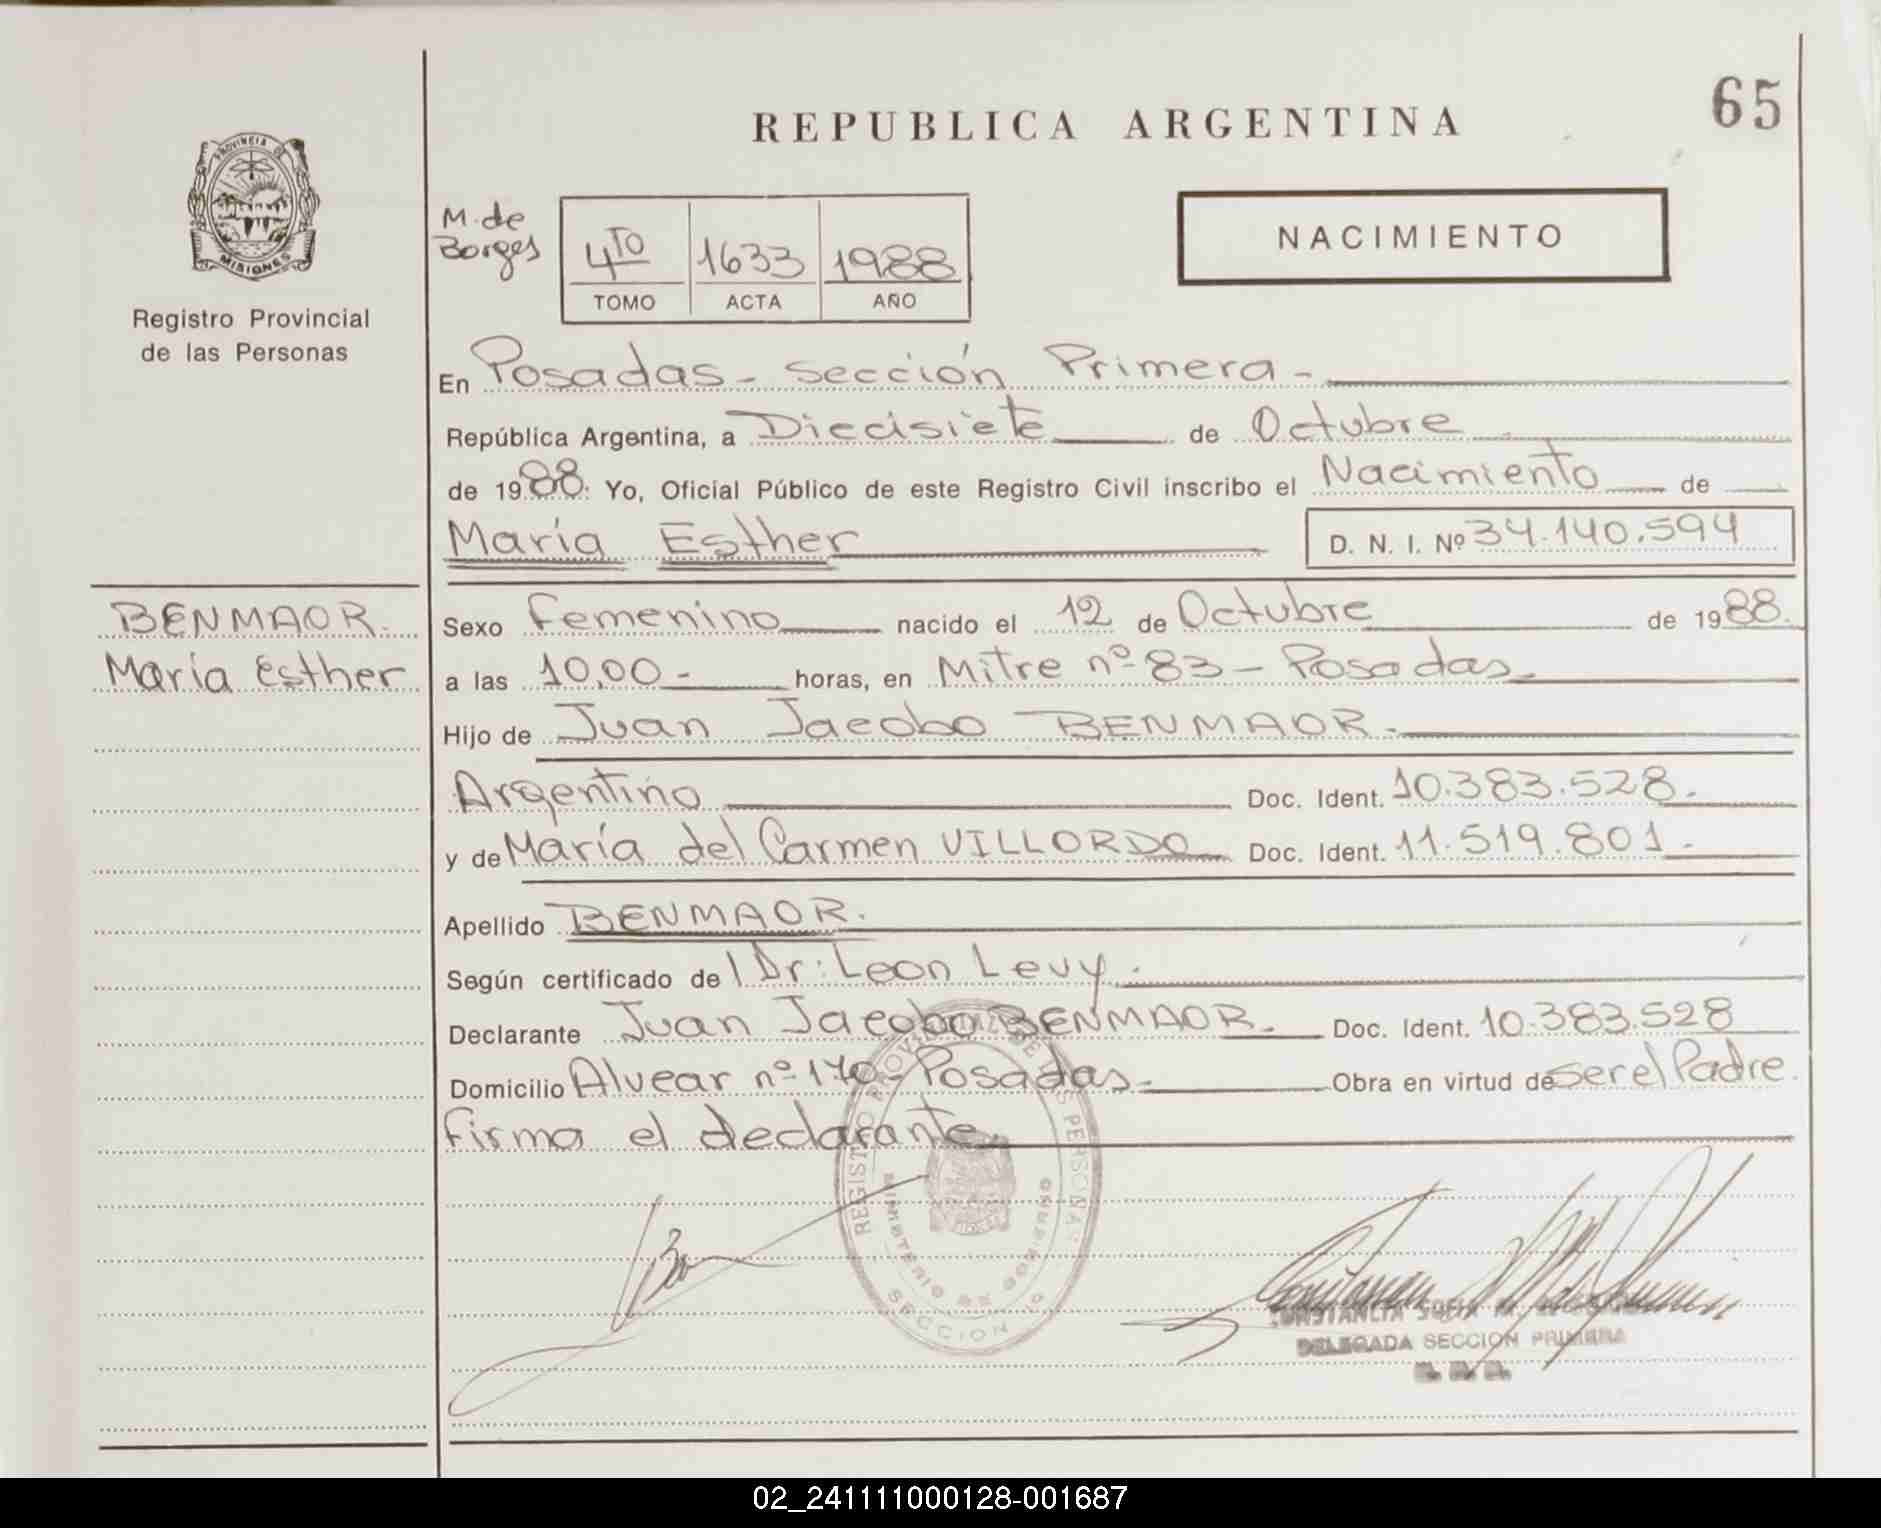 65
REPUBLICA ARGENTINA
PROVINCIA DE
MISIONES
Registro Provincial
de las Personas
M. de
Borges
4TO 1633 1988
TOMO ACTA AÑO
NACIMIENTO
En Posadas - sección Primera -
República Argentina, a Diecisiete de Octubre
de 1988: Yo, Oficial Público de este Registro Civil inscribo el Nacimiento de
María Esther D. N. I. Nº 34.140.594
BENMAOR.
María Esther
Sexo Femenino nacido el 12 de Octubre de 1988.
a las 10,00 - horas, en Mitre nº 83 - Posadas
Hijo de Juan Jacobo BENMAOR.
Argentino Doc. Ident. 10.383.528.
y de María del Carmen VILLORDO Doc. Ident. 11.519.801.
Apellido BENMAOR.
Según certificado de l Dr: Leon Levy.
Declarante Juan Jacobo BENMAOR. Doc. Ident. 10.383.528
Domicilio Alvear nº 170 - Posadas. Obra en virtud de ser el Padre.
firma el declarante.
REGISTRO PROVINCIAL DE LAS PERSONAS
MINISTERIO DE GOBIERNO
SECCION 1º
CONSTANCIA SOFIA M.
DELEGADA SECCION PRIMERA
02_241111000128-001687